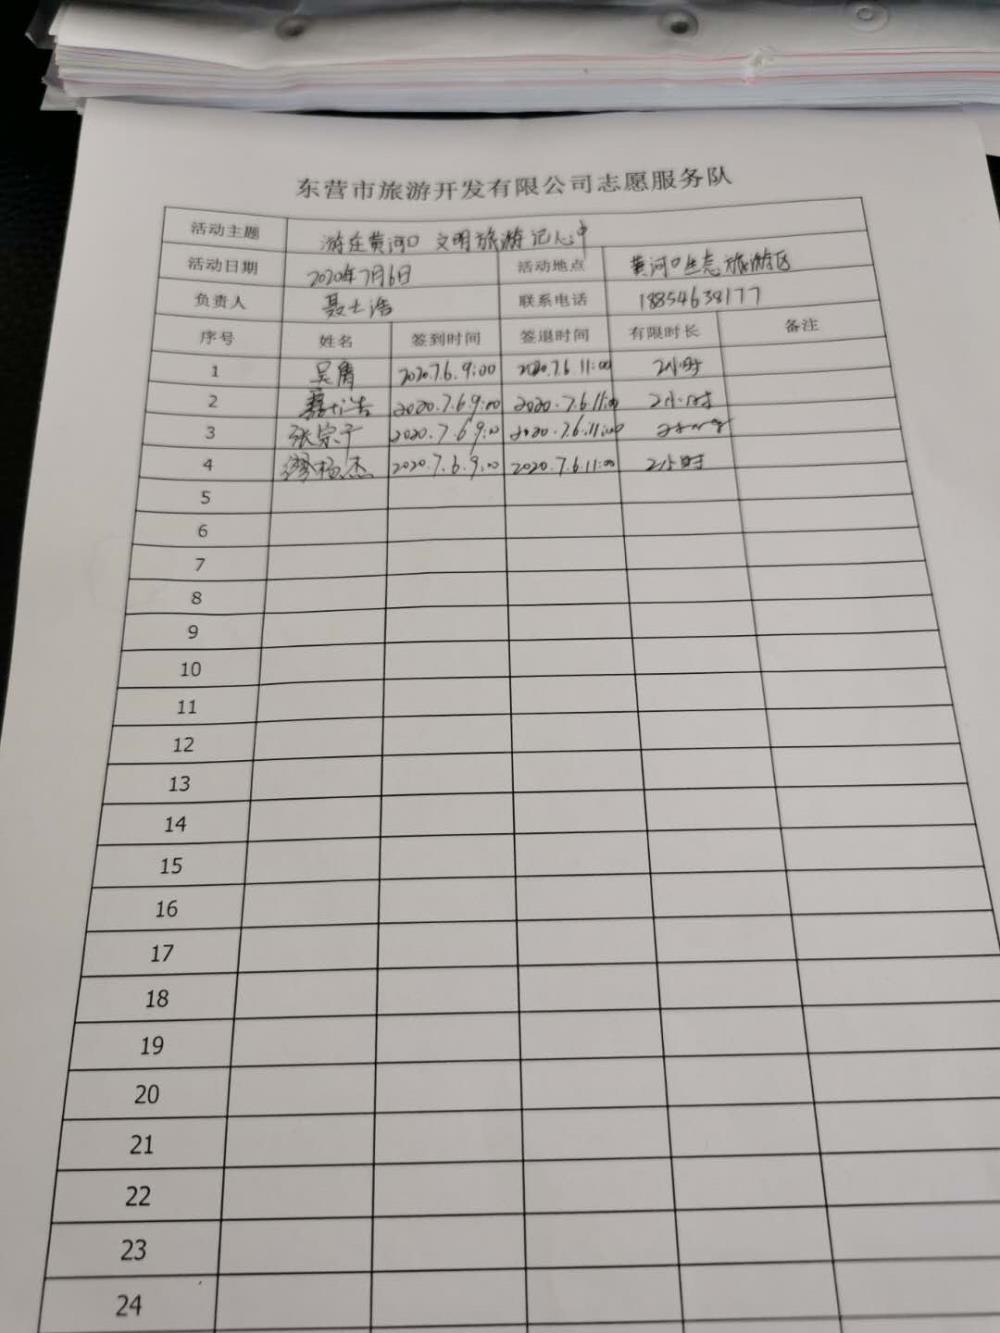 东营市旅游开发有限公司志愿服务队
活动主题 游在黄河口 文明旅游记心中
活动日期 2020年7月6日 活动地点 黄河口生态旅游区
负责人 聂士浩 联系电话 18854638177
序号 姓名 签到时间 签退时间 有限时长 备注
1 2020.7.6.9:00 2020.7.6.11:00 2小时
2 聂士浩 2020.7.6 9:00 2020.7.6.11:00 2小时
3 张宗于 2020.7.6 9:00 2020.7.6.11:00 2小时
4 缪杨杰 2020.7.6.9:00 2020.7.6.11:00 2小时
5
6
7
8
9
10
11
12
13
14
15
16
17
18
19
20
21
22
23
24